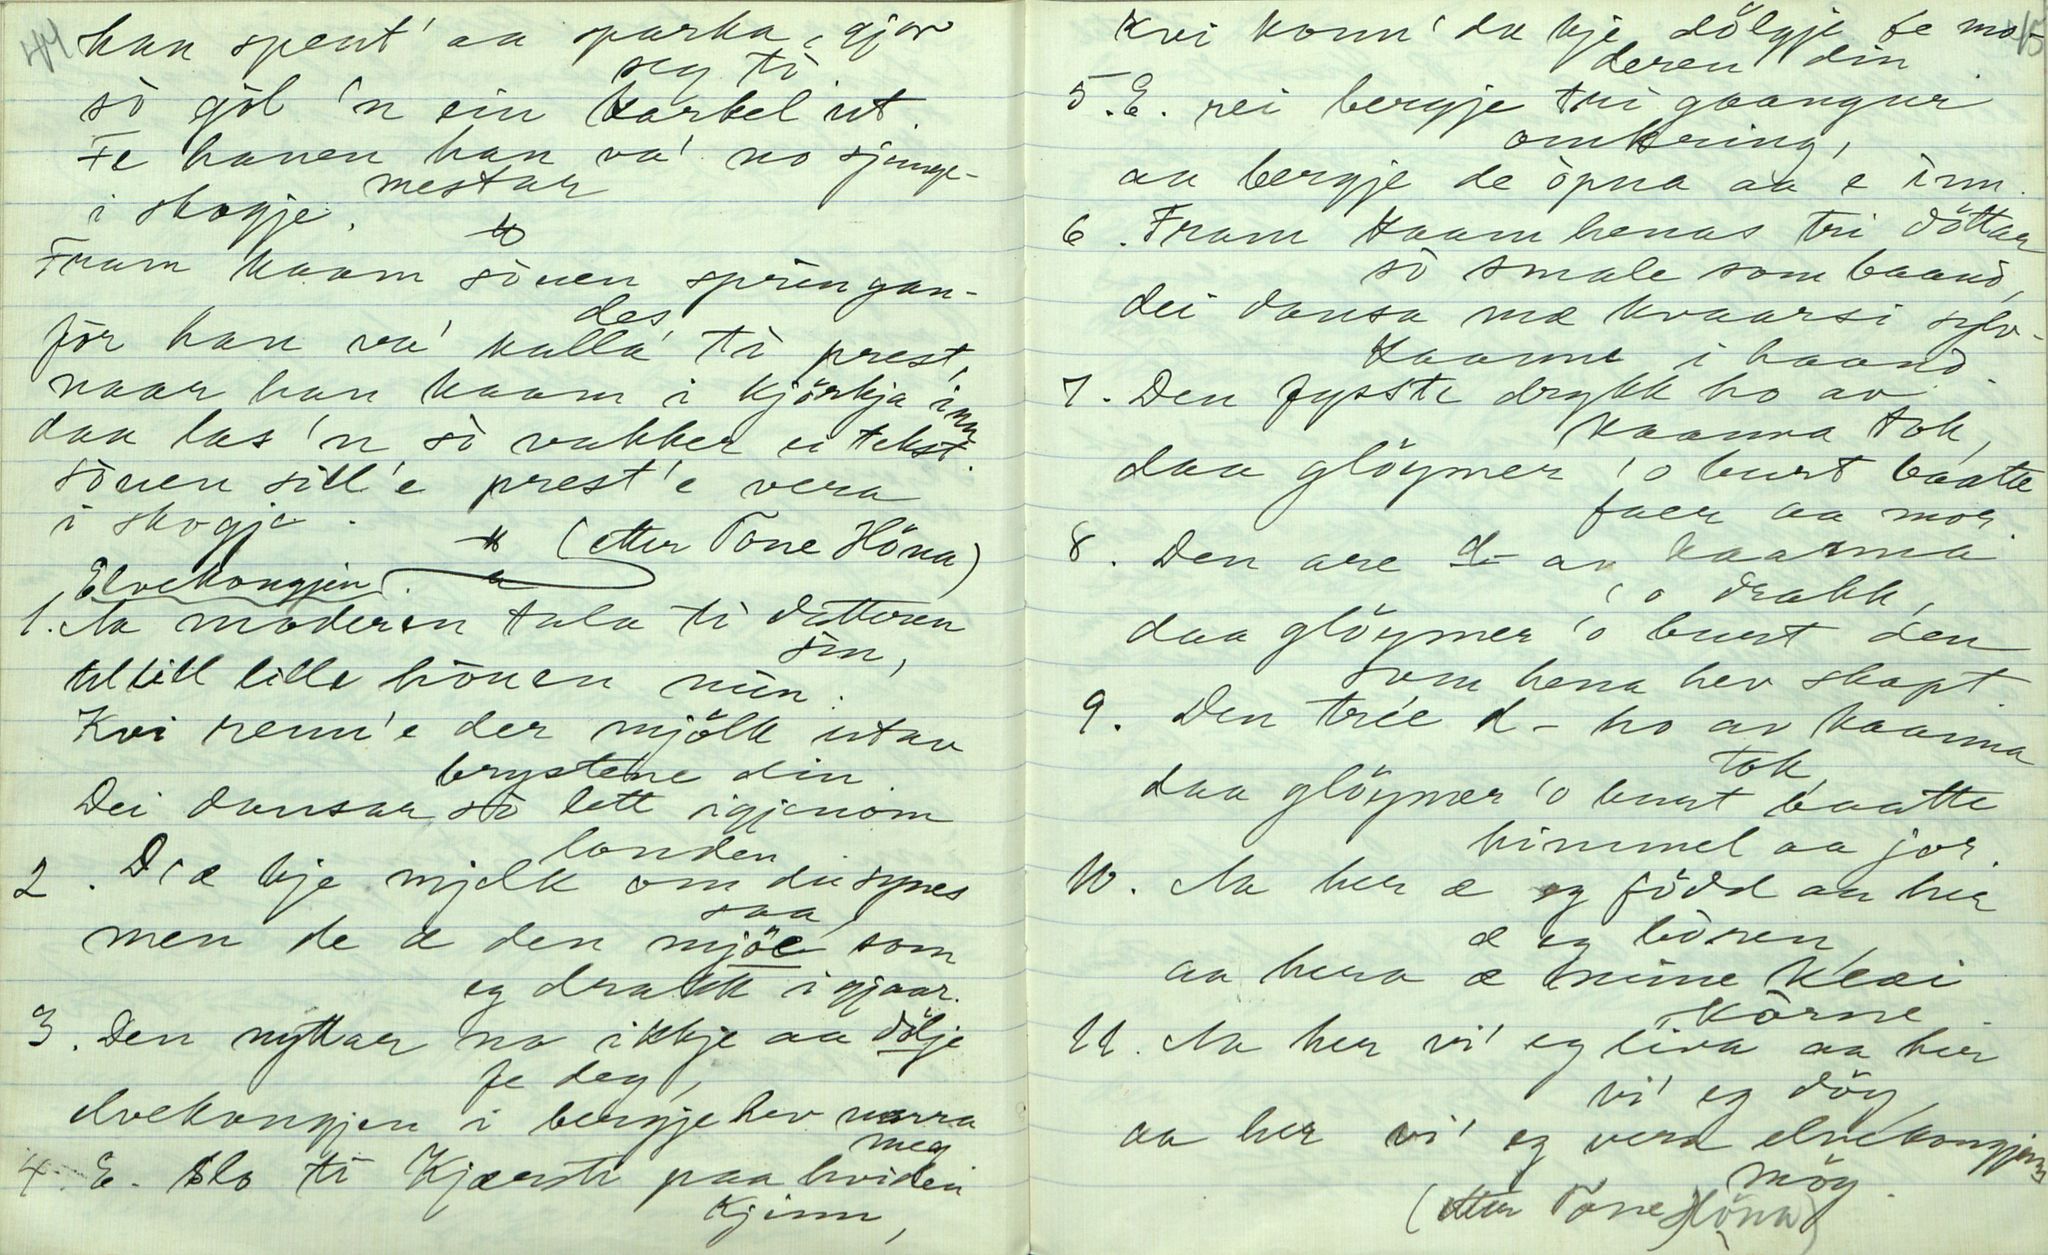 44
han spent' aa sparka, gjor
seg ti
så gjöl 'n ein karkel ut.
Fe hanen han va' no sjunge-
mestar
i skogje.
Fram kaam sönen springan-
des
för han va' kalla' ti prest,
naar han kaam i kjörkja inn
daa las 'n so vakker ei tekst.
sönen sill'e prest'e vera
i skogje.
(etter Tone Höna)
Elvekongjen.
1. Aa moderen tala ti datteren
sin,
til lill lille hönen min.
Kvi renn'e der mjölk utav
brystene din
Dei dansar so lett igjenom
landen
2. D'æ kje mjelk om du synes
saa
men de æ den mjöe som
eg drakk i gjaar.
3. Den nyttar no ikkje aa dölje
fe deg,
elvekongjen i bergje hev narra
meg
4. E. slo ti Kjærsti paa hviden
Kjinn,
45
Kvi konn' du kje dölgje fe mo-
deren din
5. E. rei bergje tri gaangur
omkring,
aa bergje de öpna aa e inn.
6. Fram kaam henas tri döttar
so smale som baand,
dei dansa mæ kvaarsi sylv-
kaanne i haand.
7. Den fysste drykk ho av
kaanna tok,
daa glöymer 'o burt baatte
faer aa mor
8. Den are d- av kaanna
'o drakk,
daa glöymer 'o burt den
som hena hev skapt
9. Den trie d- ho av kaanna
tok,
daa glöymer 'o burt baatte
himmel aa jor.
10. Aa her æ eg född aa her
æ eg boren,
aa hera æ mine klæi
körne
11. Aa her vi' eg liva aa her
vi' eg döy
aa her vi' eg vera elvekongjens
möy.
(etter Tone Höna)